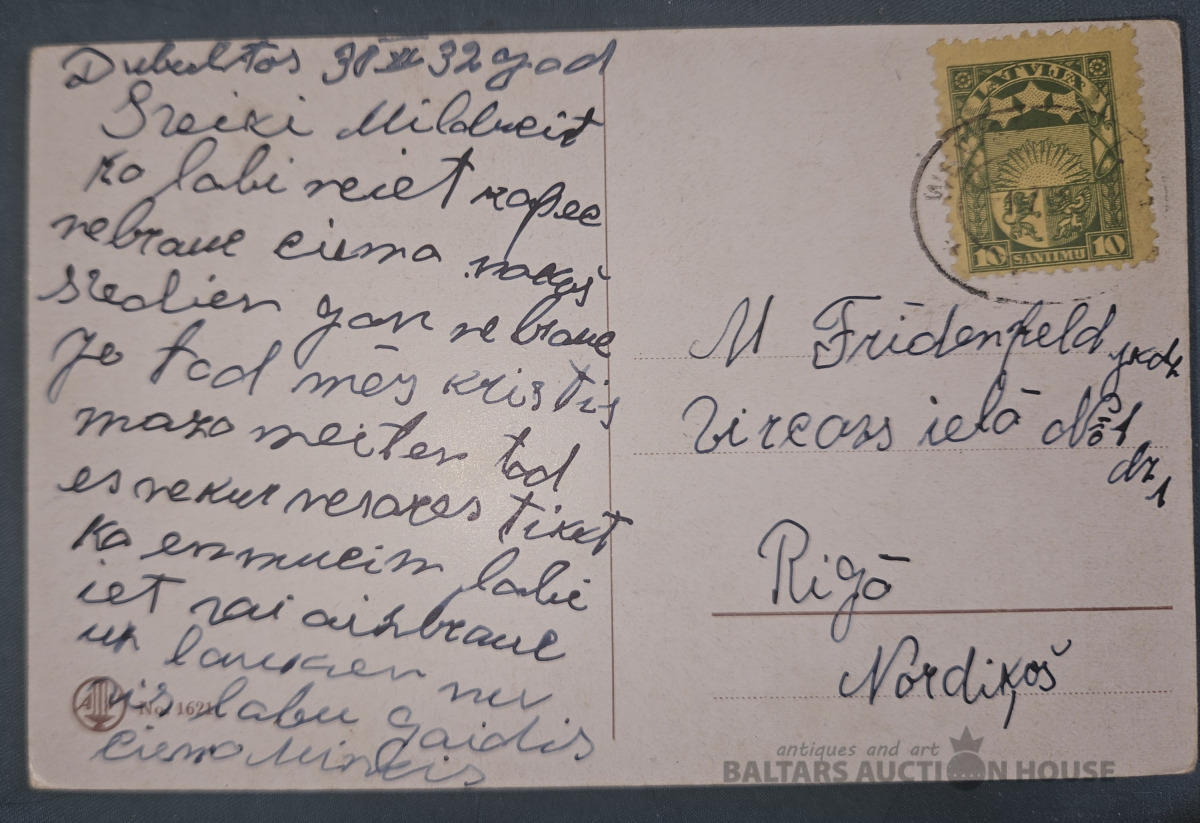 Dubultos 31 XII 32 gad
Sveiki Mildiņeit
ka labi neiet kapec
nebrauc ciema nakoš
svedien gan nebrauc
jo tad mēs kristis
mazo meiten tad
es nekur nesazes tiket
ka emmucim labi
iet vai aizbrauc
un lauken nu
vis labu gaidis
ciema Mincis
No 1621
LATVIJA
10 SANTIMU 10
M Fridenfeld jkdz
Vircavs ielā №
dz 1
Rigā
Nordiķoš
antiques and art
BALTARS AUCTION HOUSE